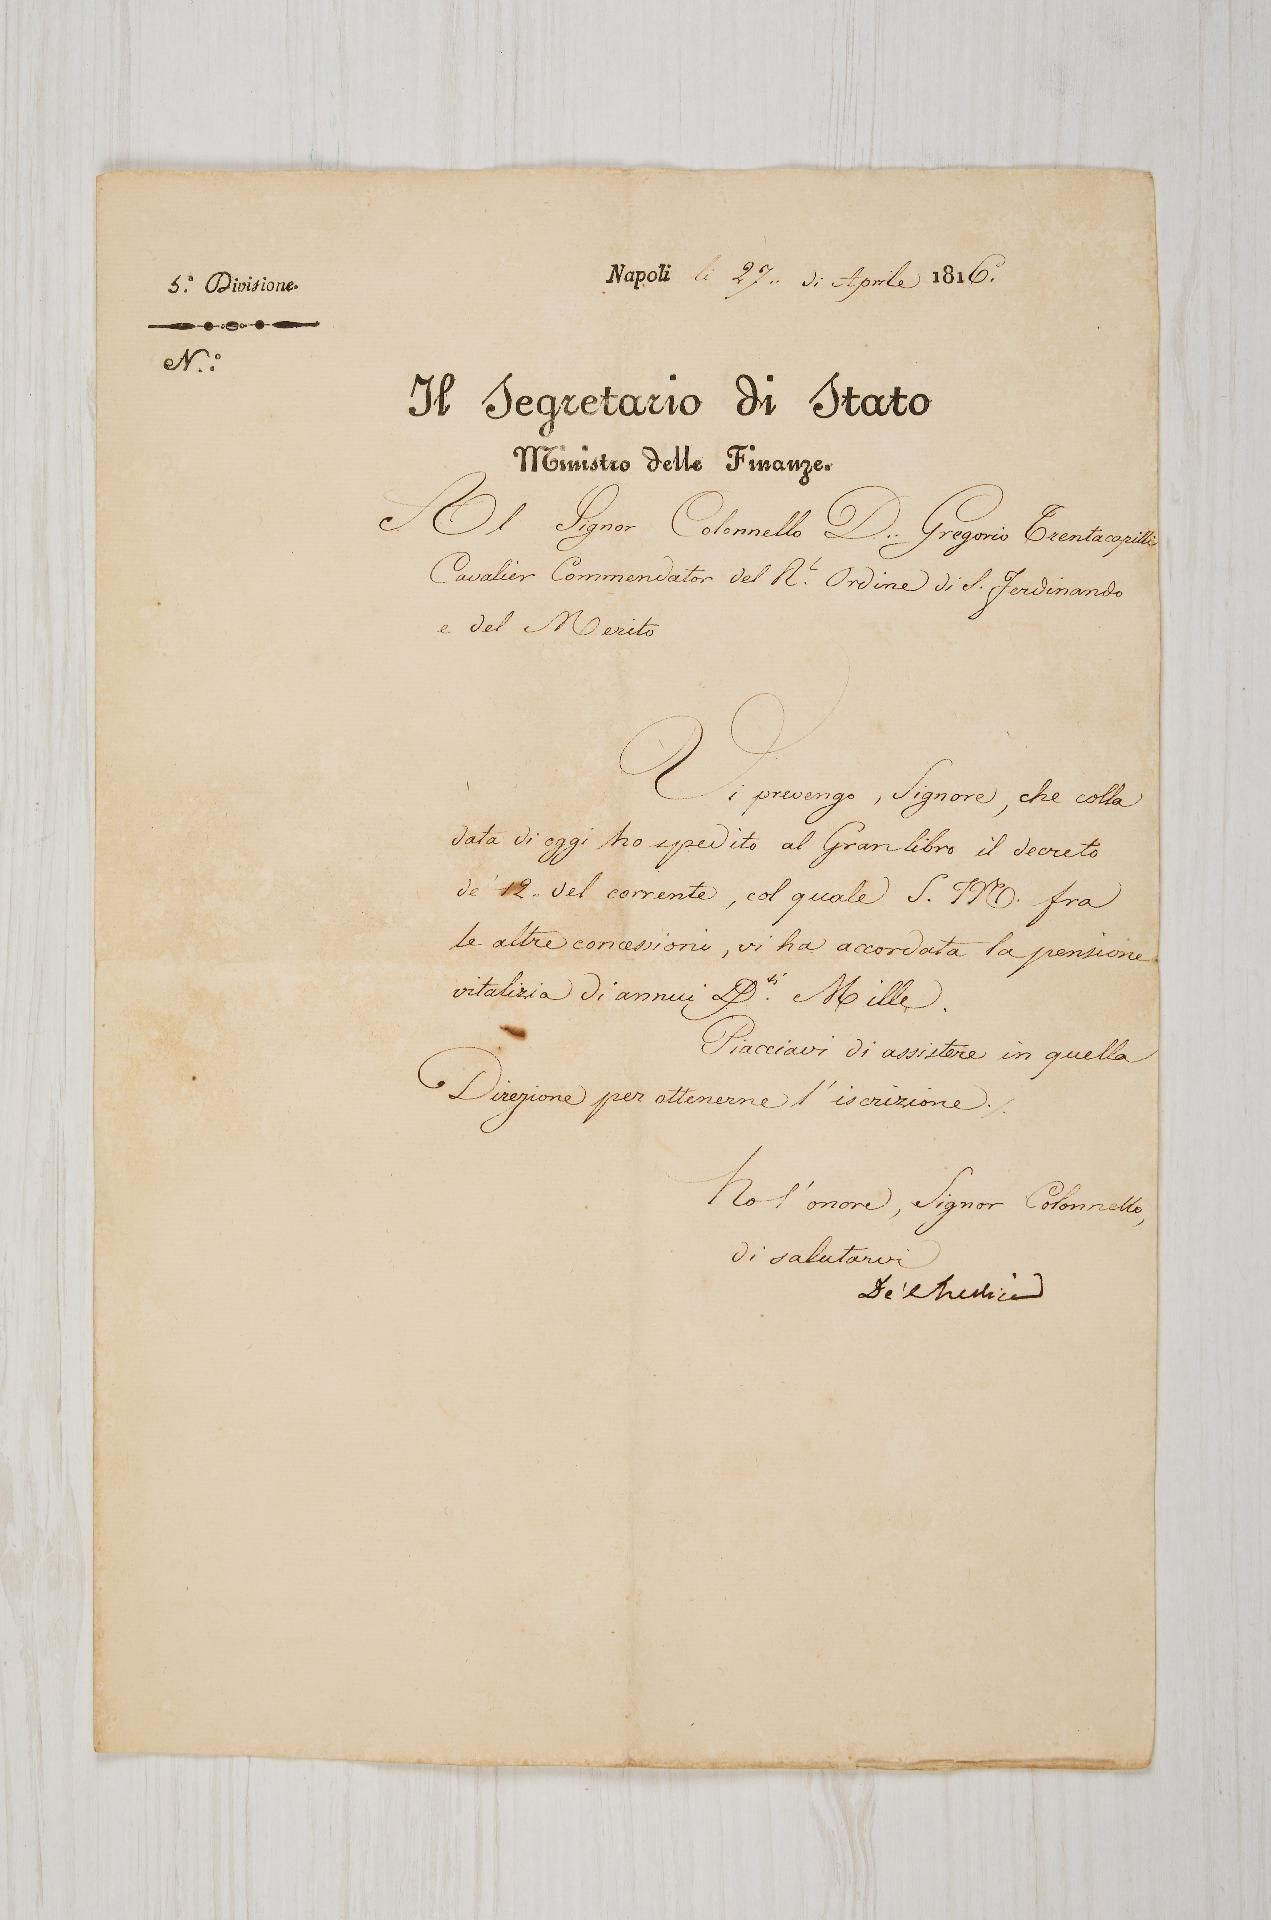 5.ª Divisione.
Napoli li 27.. di Aprile 1816.
N.º
Il Segretario di Stato
Ministro delle Finanze.
Al Signor Colonnello D.. Gregorio Trentacapilli
Cavalier Commendator del R.l Ordine di S. Ferdinando
e del Merito
Vi prevengo, Signore, che colla
data di oggi ho spedito al Gran libro il decreto
de' 12.. del corrente, col quale S. M. fra
le altre concessioni, vi ha accordata la pensione
vitalizia di annui D.ti Mille.
Piacciavi di assistere in quella
Direzione per ottenerne l'iscrizione./.
Ho l'onore, Signor Colonnello,
di salutarvi
De' Medici